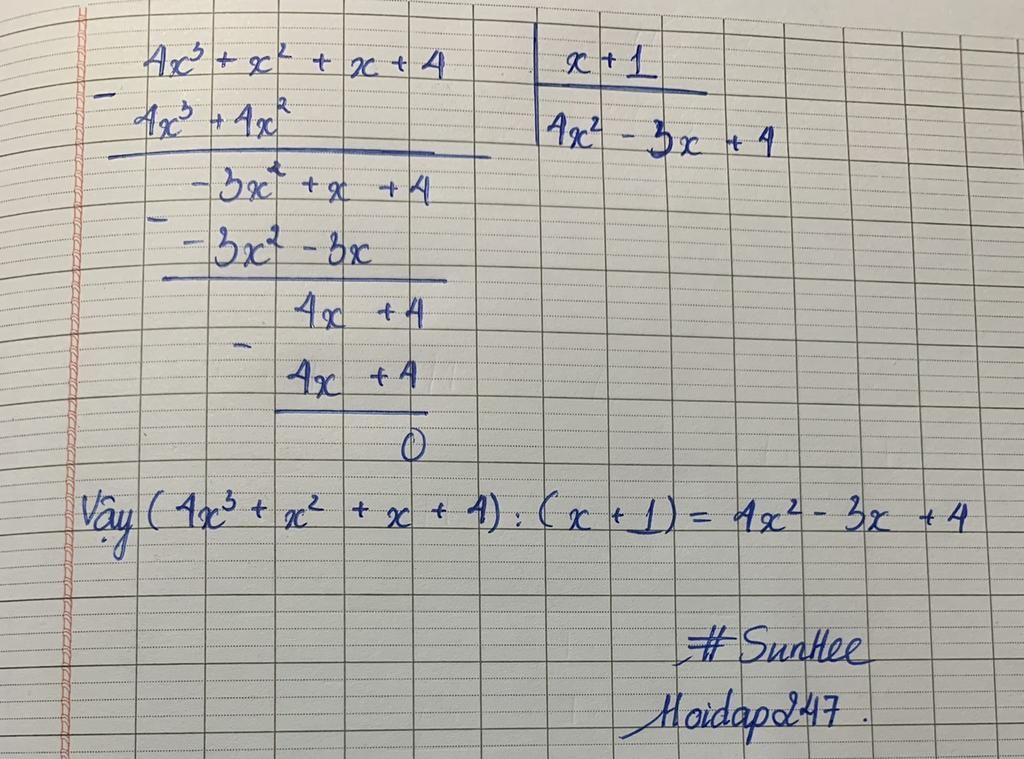 4x³ + x² + x + 4 | x + 1
- 4x³ + 4x² | 4x² - 3x + 4
- 3x² + x + 4
- - 3x² - 3x
4x + 4
- 4x + 4
0
Vậy (4x³ + x² + x + 4) : (x + 1) = 4x² - 3x + 4
# SunHee
Hoidap247.